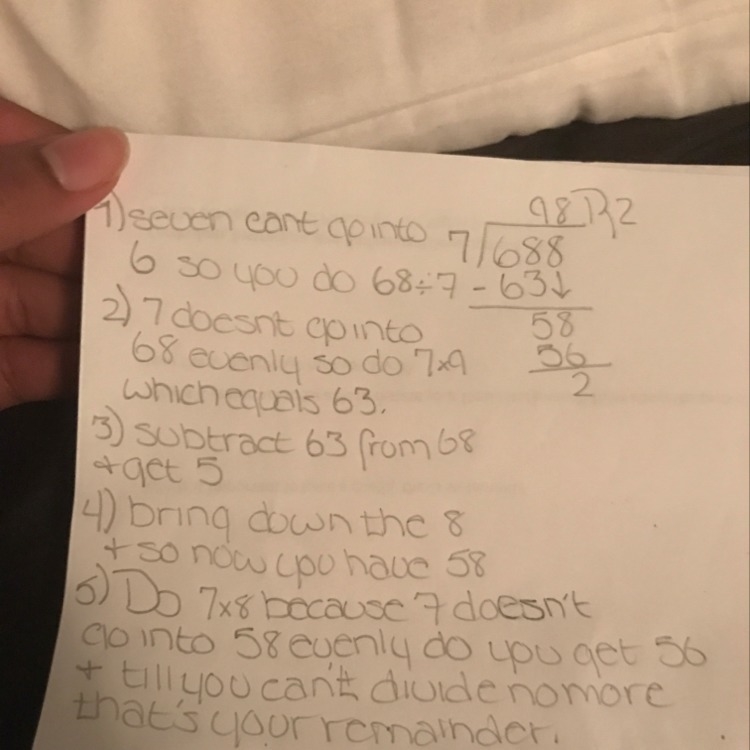 1) seven cant go into
6 so you do 68÷7
2) 7 doesnt go into
68 evenly so do 7x9
which equals 63.
3) subtract 63 from 68
+ get 5
4) bring down the 8
+ so now you have 58
5) Do 7x8 because 7 doesn't
go into 58 evenly do you get 56
+ till you can't divide no more
that's your remainder.
98 R2
7/688
- 63↓
58
56
2